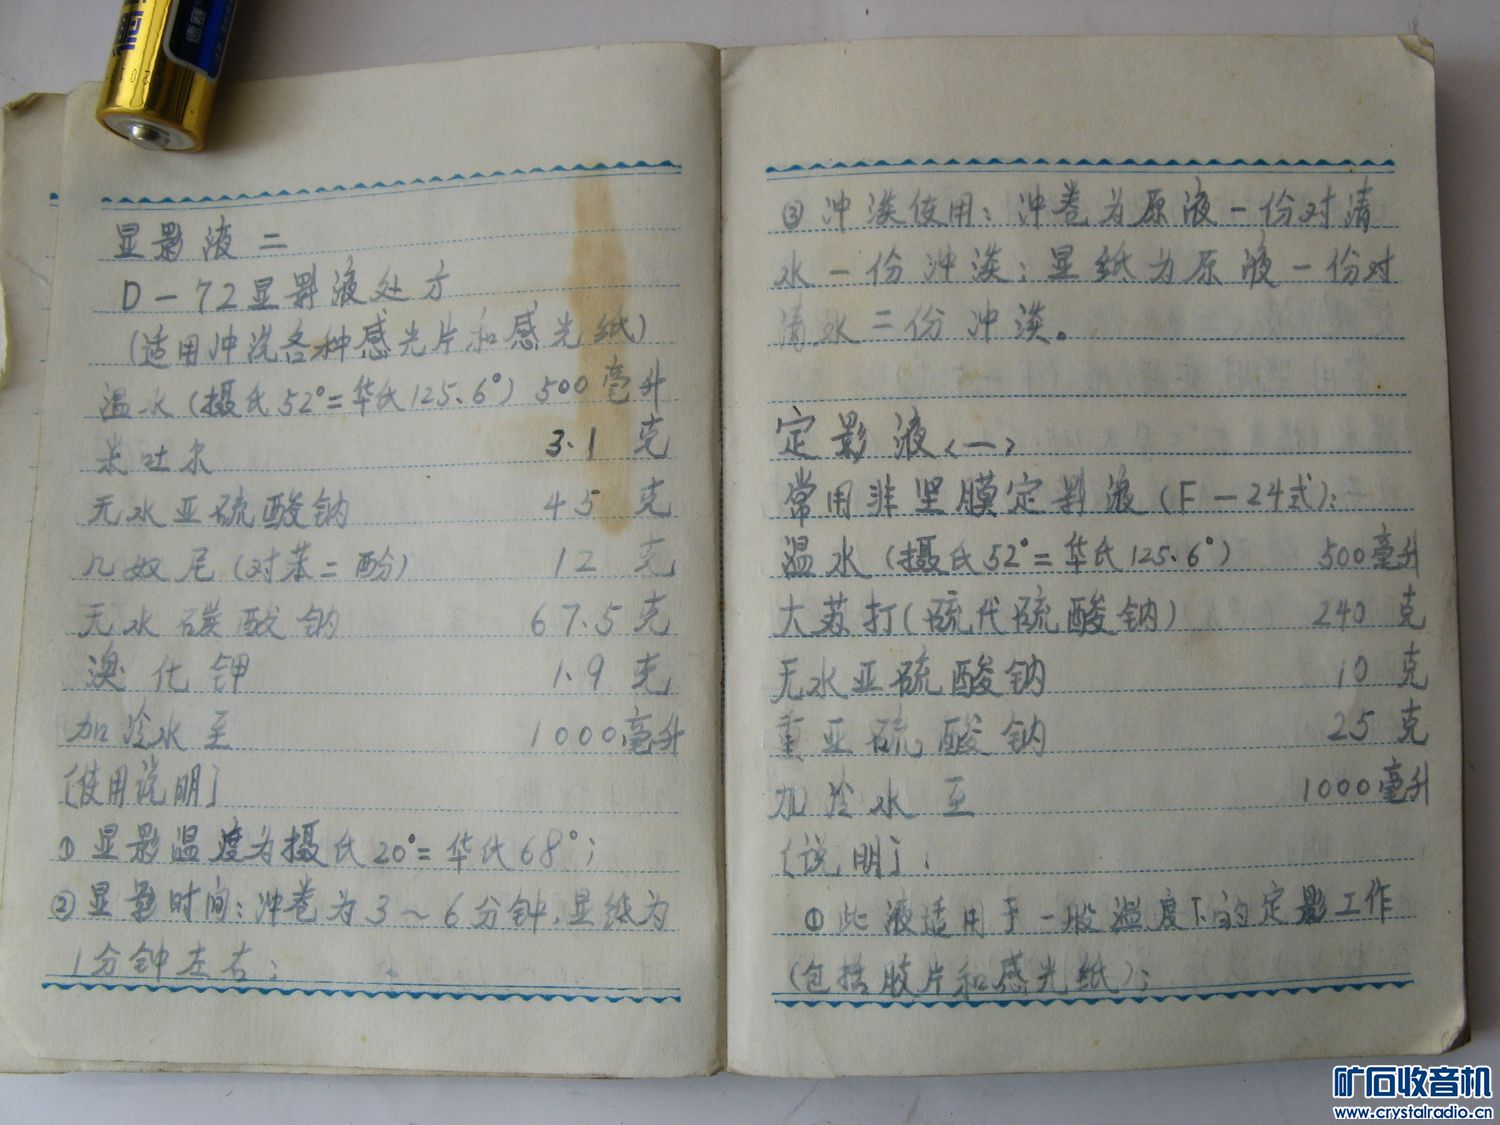 显影液二
D-72显影液处方
(适用冲洗各种感光片和感光纸)
温水(摄氏52°=华氏125.6°) 500毫升
米吐尔 3.1 克
无水亚硫酸钠 45 克
几奴尼(对苯二酚) 12 克
无水碳酸钠 67.5克
溴化钾 1.9 克
加冷水至 1000毫升
[使用说明]
①显影温度为摄氏20°=华氏68°;
②显影时间:冲卷为3~6分钟,显纸为
1分钟左右;
③冲淡使用:冲卷为原液一份对清
水一份冲淡;显纸为原液一份对
清水二份冲淡。
定影液<一>
常用非坚膜定影液(F-24式):
温水(摄氏52°=华氏125.6°) 500毫升
大苏打(硫代硫酸钠) 240 克
无水亚硫酸钠 10 克
重亚硫酸钠 25 克
加冷水至 1000毫升
[说明]:
①此液适用于一般温度下的定影工作
(包括胶片和感光纸);
德赛
矿石收音机
www.crystalradio.cn